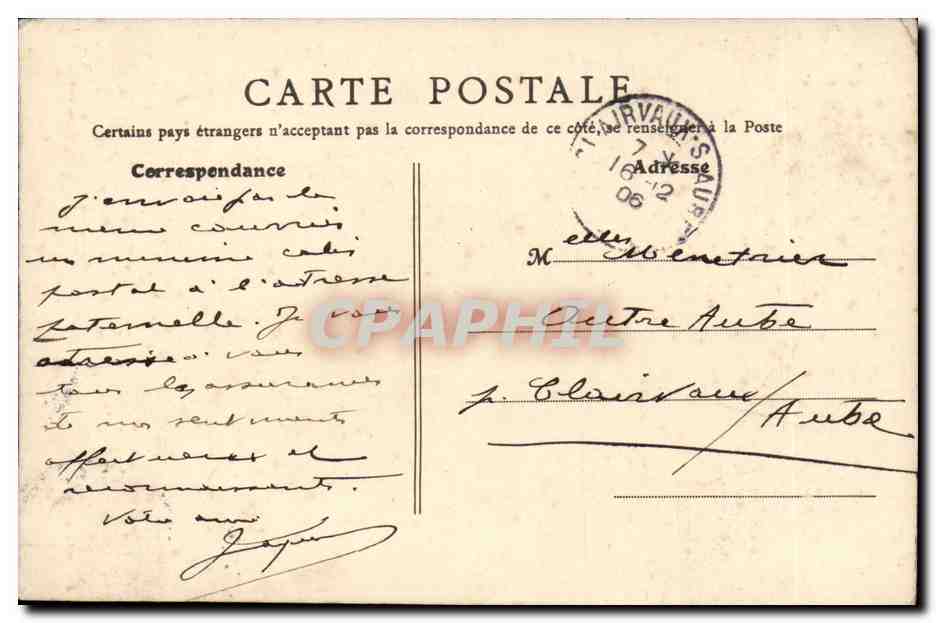 CARTE POSTALE
Certains pays étrangers n'acceptant pas la correspondance de ce côté, se renseigner à la Poste
Correspondance
J'envoie par le
même courrier
un minime colis
postal à l'adresse
paternelle. Je vous
adresse à vous
tous les assurances
de mes sentiments
affectueux et
reconnaissants.
Votre ami
Adresse
CLAIRVAUX-S-AUBE
7
16-12
06
M elles Menetrier
Outre Aube
p. Clairvaux/
Aube
CPAPHIL